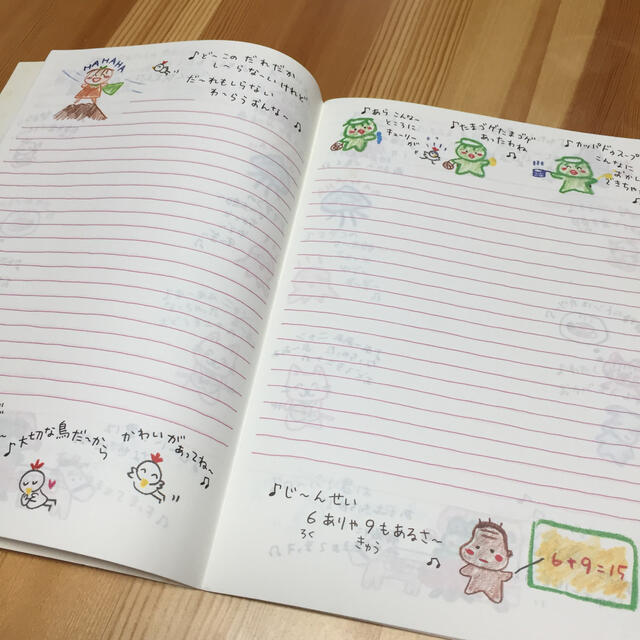 HAHAHA
♪どーこの だれだか
し〜らな〜いけれど
だ〜れもしらない
わ〜らうおんな〜♪
♪あら こんな〜
ところに
キューリー
が
♪たまづがたまづが
あったわね
♪
♪カッパドゥスープ
こんな
おかし
できちゃ
♪大切な鳥だ〜から
かわいが
あってね〜
♪
♪じ〜んせい
6ありゃ9もあるさ〜
ろく
きゅう
♪
6+9=15